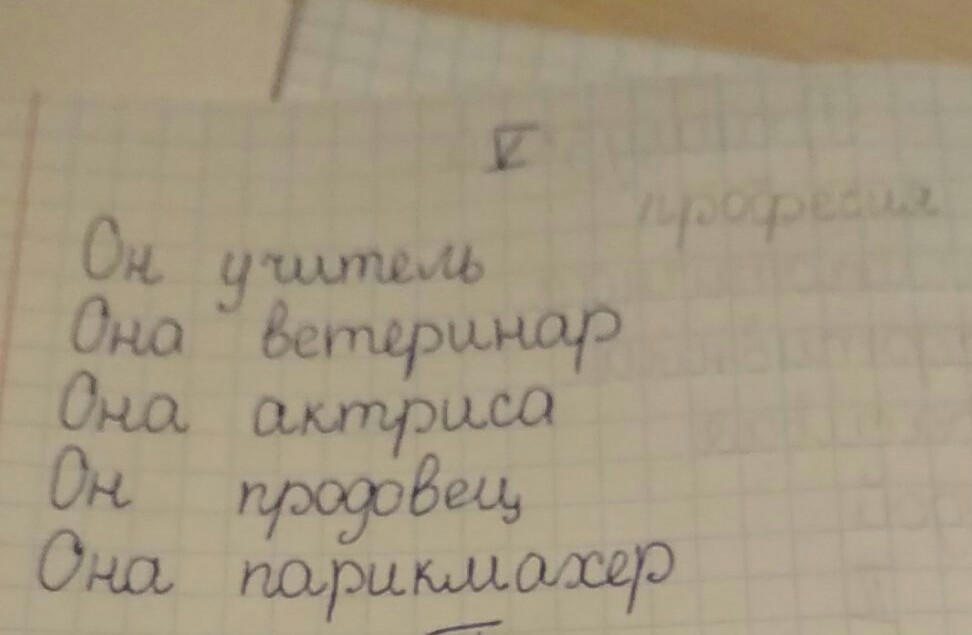 V
професия
Он учитель
Она ветеринар
Она актриса
Он продовец
Она парикмахер